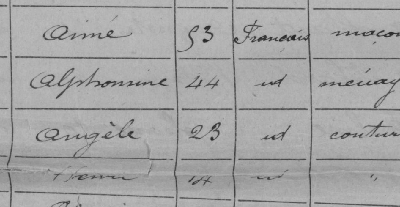 Aimé 53 Français maçon
Alphonsine 44 id ménag
Angèle 23 id coutur
Henri 14 id "